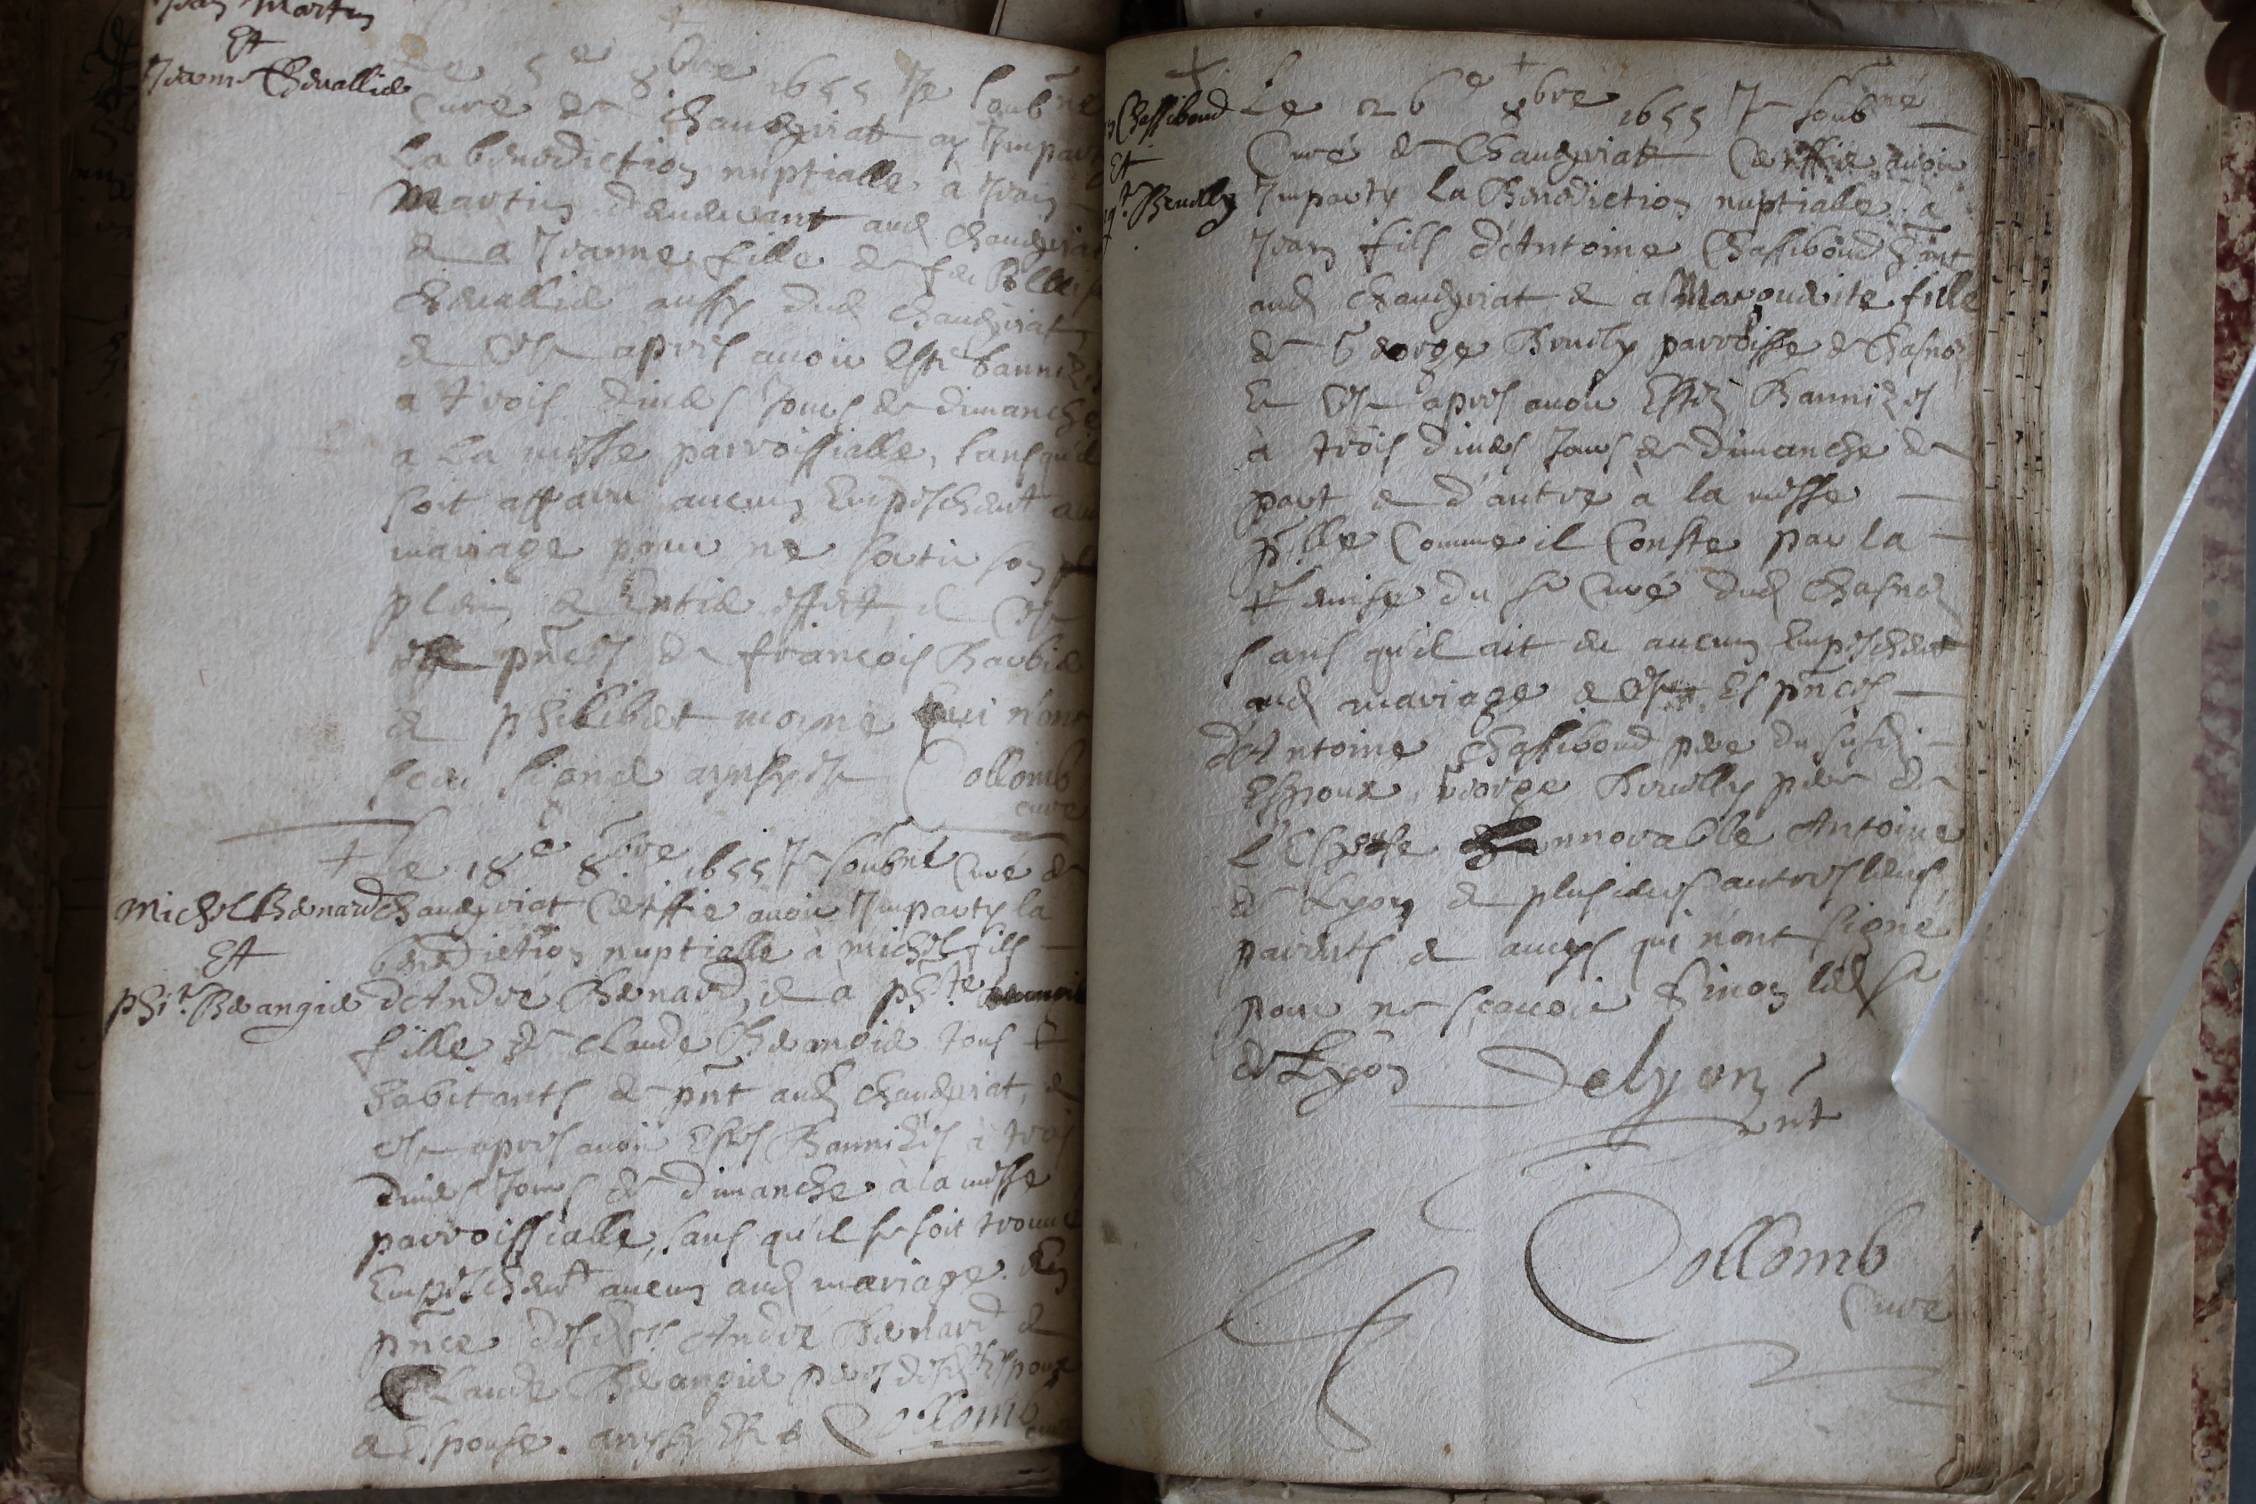 Jean Martin
Et
Jeanne Chevallier
Le 5e 8bre 1655 Je soubné
Curé de Chaudziriat ay Imparty
La benediction nuptialle à Jean
Martin demeurant aud Chaudziriat
& à Jeanne fille de feu
Chevallier aussy dud Chaudziriat
& Ce apres avoir Esté bannizes
a trois divers Jours de dimanche
a La messe parroissialle, sans qu'il
soit apparu aucung Empeschemt au
mariage pour ne sortir son
plein & Entier effect, & Ce
es pñces de françois Barbier
& philibert moyne qui n'ont
sceu signer aynsy est Collomb
curé
Le 18e 8bre 1655 Je soubné Curé de
Michel Benard
Et
phi.te Berangier
Chaudziriat Certiffie avoir Imparty la
benediction nuptialle à michel fils
d'André Benard, & à ph.te
fille de Claude Berangier tous
habitants de pñt aud Chaudziriat, &
Ce apres avoir Estés Bannizés à trois
divers Jours de dimanche à la messe
parroissialle, sans qu'il se soit trouvé
Empeschemt aucung aud mariage. En
pñce desd. André Benard &
Claude Berangier peres desd Espoux
& Espouse. aynsy Est Collomb
curé
Chassiboud
Et
Breully
Le 26e 8bre 1655 Je soubné
Curé de Chaudziriat Certiffie avoir
Imparty La Benediction nuptialle a
Jean fils d'Antoine Chassiboud
aud Chaudziriat & a Marguerite fille
de George Breully parroisse de Chasne
Et Ce apres avoir Estéz Bannizes
à trois divers Jours de dimanche de
part & d'autre à la messe
p.lle Comme il Conste par la
Remise du sr Curé dud Chasne
sans qu'il ait eu aucung Empeschemt
aud mariage & Ce Es pñces
d'Antoine Chassiboud pere du susd
Espoux, George Breully pere de
L'Espouse honnorable Antoine
de Lyon & plusieurs autres leurs
parents & amys qui n'ont signé
pour ne sçavoir Sinon led sr
de Lyon Delyon
Collomb
Curé